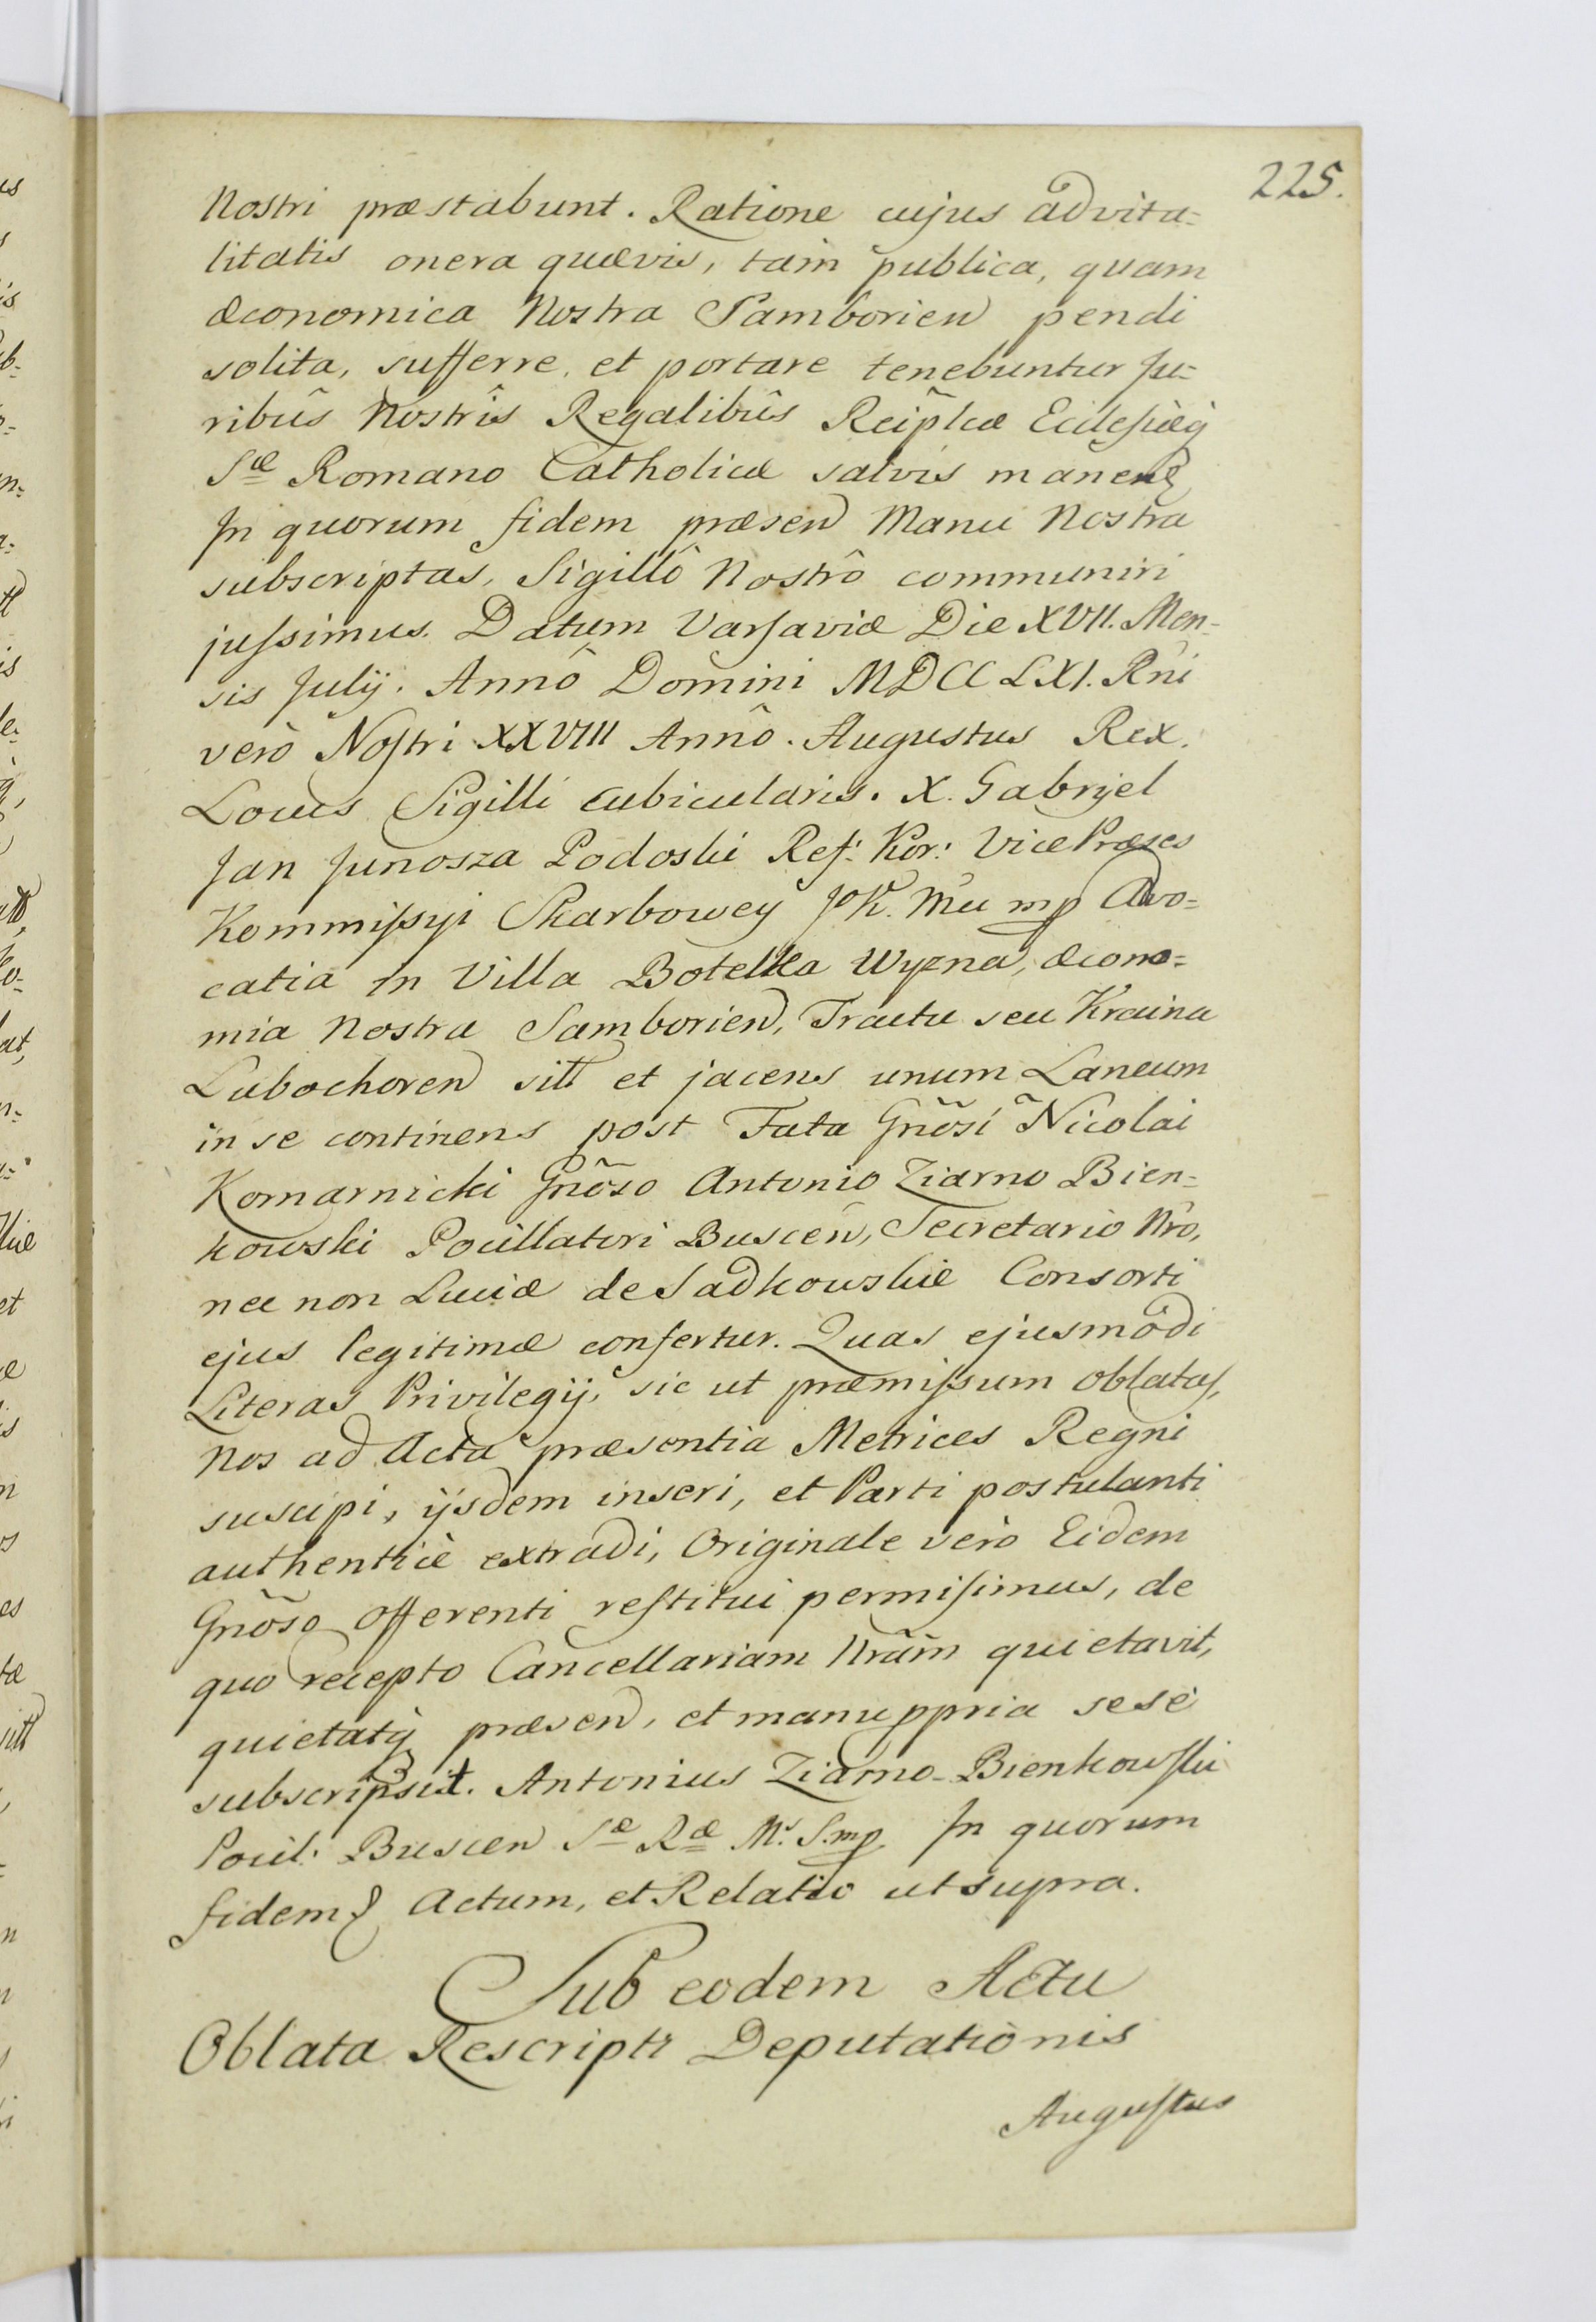 225.
Nostri præstabunt. Ratione cujus advita=
litatis onera quævis, tam publica, quam
œconomica Nostra Samborien pendi
solita, sufferre, et portare tenebuntur Ju=
ribûs Nostrîs Regalibûs Reiplcæ Ecclesiæq
Sæ Romano Catholicæ salvis manen
In quorum fidem præsen Manu Nostra
subscriptas, Sigillô Nostrô communiri
jussimus. Datum Varsaviæ Die XVII. Men=
sis Julij. Annô Domini MDCCLXI. Rni
verò Nostri XXVIII Annô. Augustus Rex.
Locus Sigilli cubicularis. X. Gabryel
Jan Junosza Podoski Ref: Kor: Vice Præses
Kommissyi Skarbowey JK. Mci mp Advo=
catia in Villa Botelka Wyzna, œcono=
mia Nostra Samborien, Tractu seu Kraina
Lubochoren sitt et jacens unum Laneum
in se continens post Fata Gñosi Nicolai
Komarnicki Gñoso Antonio Ziarno Bien=
kowski Pocillatori Buscen, Secretario Nro,
nec non Luciæ de Sadkowskie Consorti
ejus legitimæ confertur. Quas ejusmôdi
Literas Privilegij, sic ut præmissum oblatas,
Nos ad Acta præsentia Metrices Regni
suscipi, ijsdem inseri, et Parti postulanti
authenticè extradi, Originale verò Eidem
Gñoso Offerenti restitui permisimus, de
quo recepto Cancellariam Nrãm quietavit,
quietatq præsen, et manu ppria sese
subscripsit. Antonius Ziarno-Bienkowski
Pocil: Buscen Sæ Ræ Ms. S. mp. In quorum
fidem Actum, et Relatio ut supra.
Sub eodem Actu
Oblata Rescripti Deputationis
Augustus